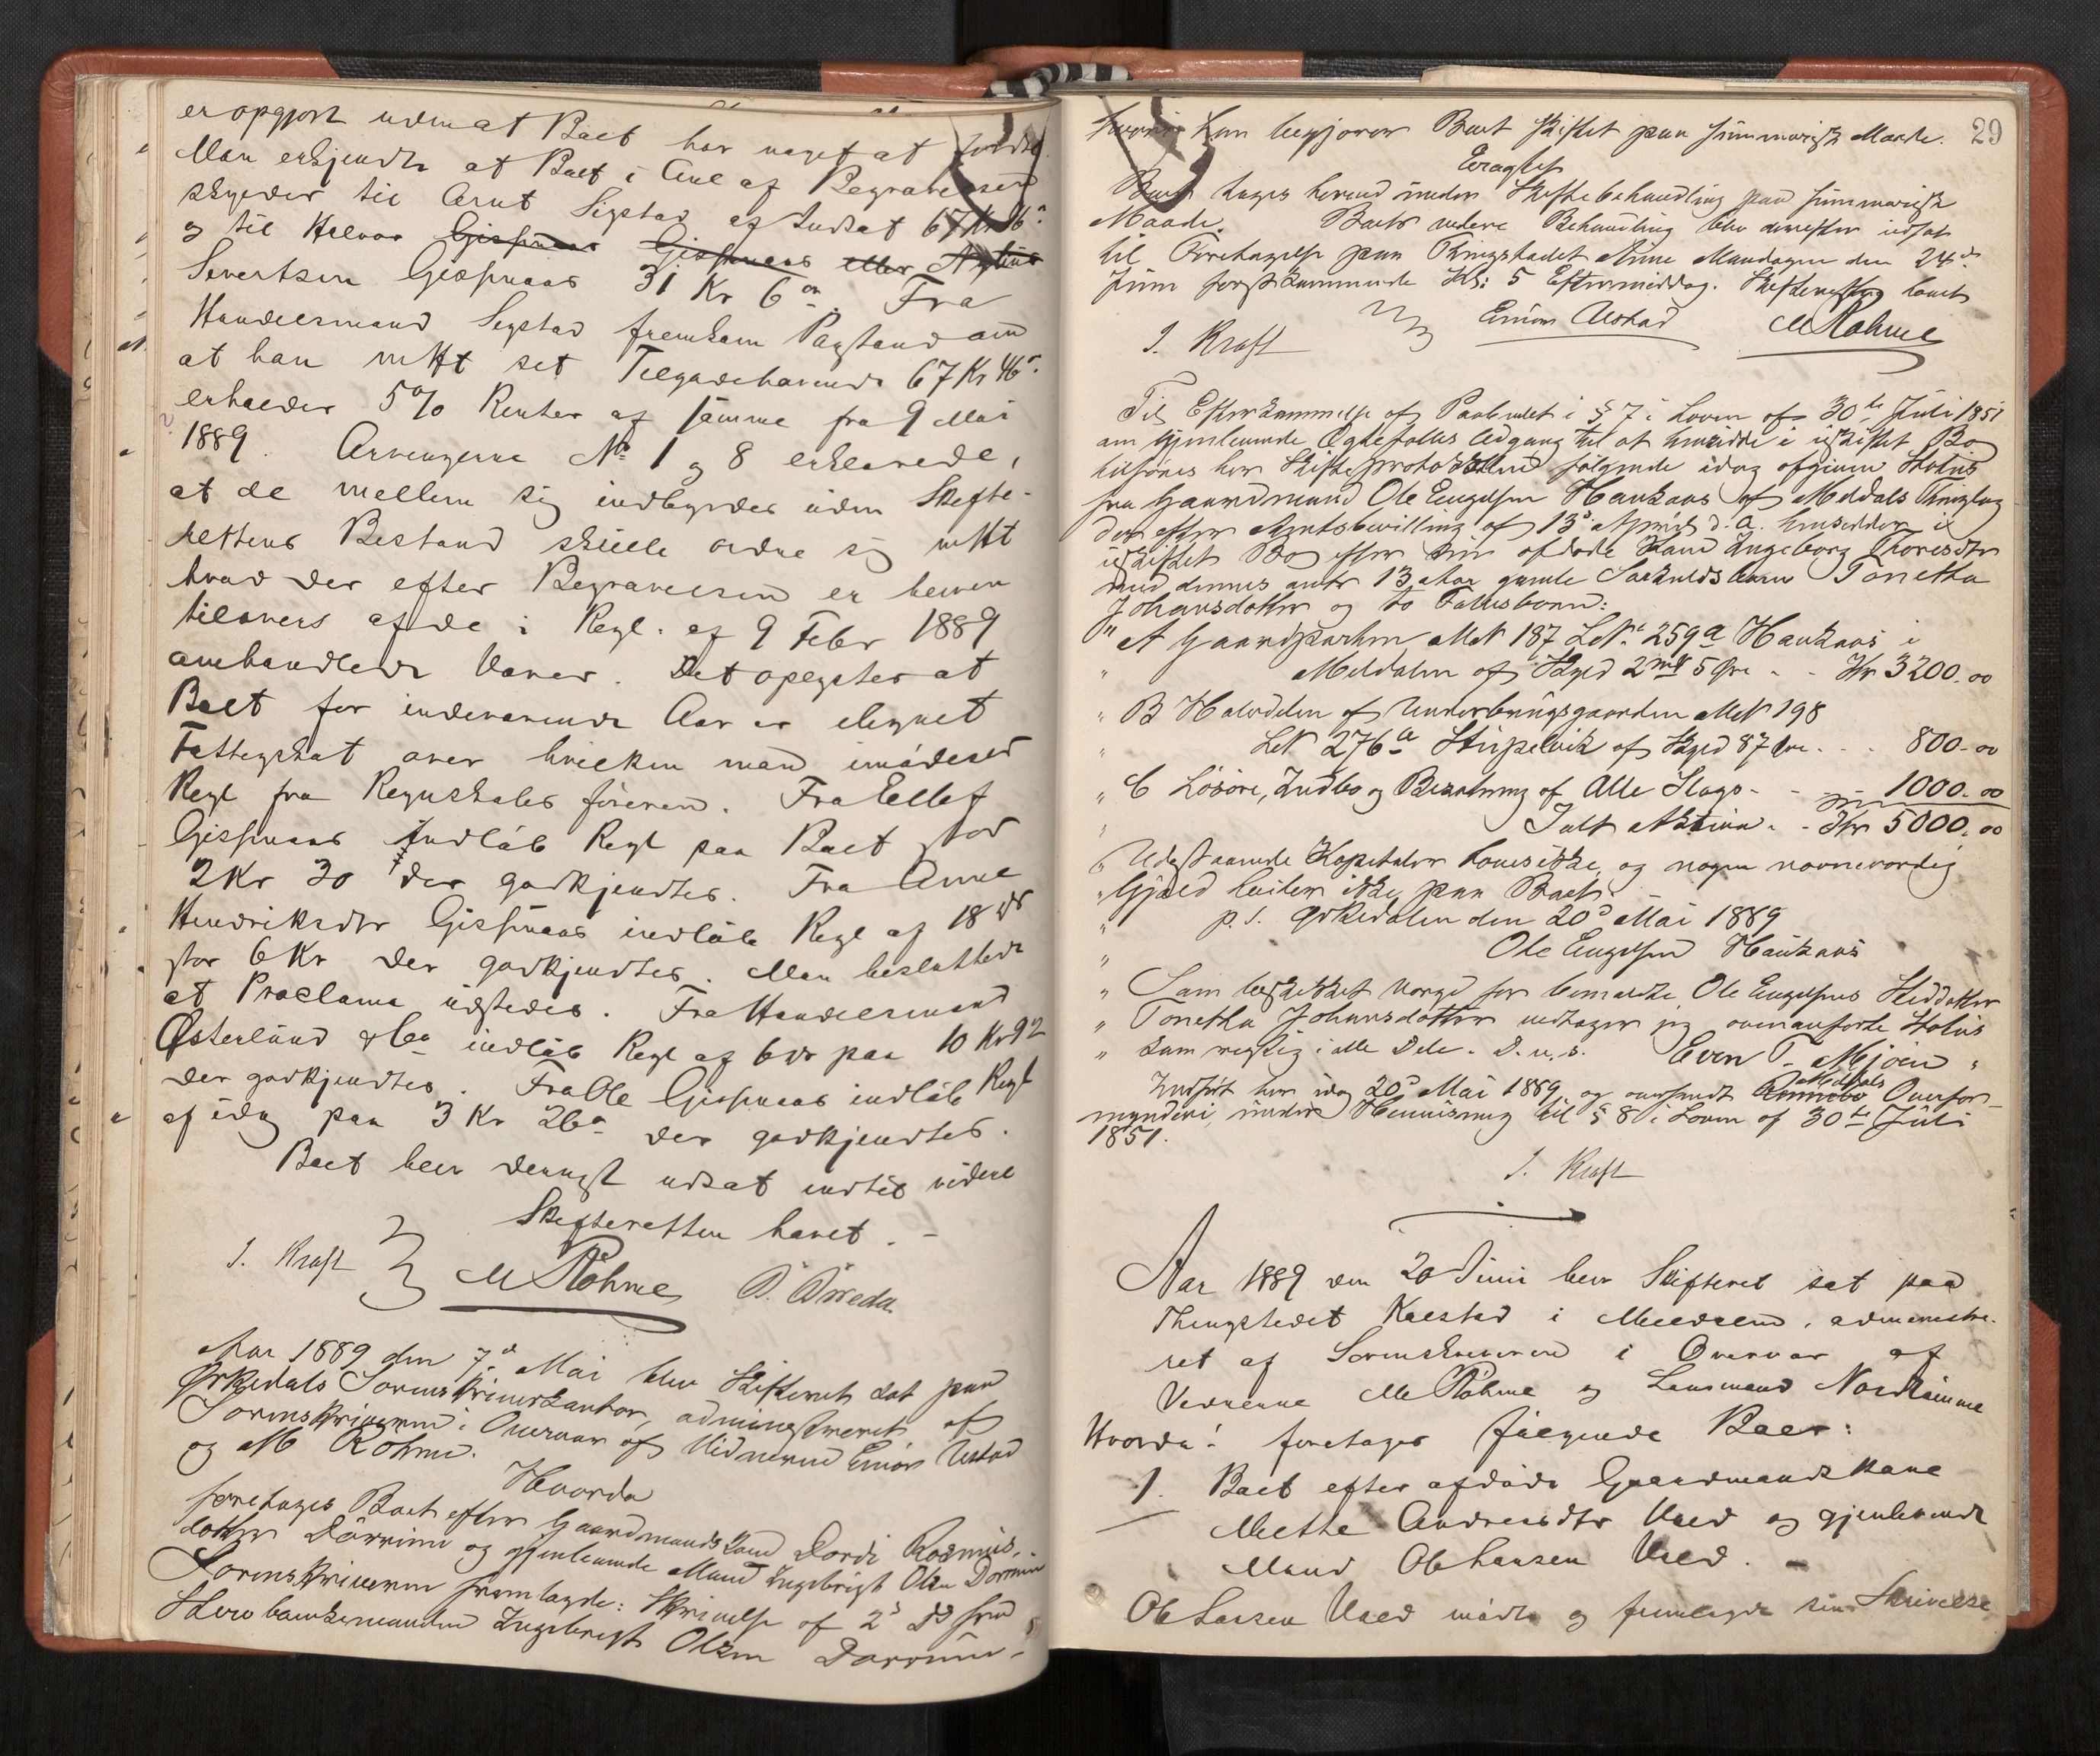 er opgjort uden at Boet har noget at fordre.
Man erkjendte at Boet i Anl af Begravelsen
skylder til Arnt Sigstad af Indsat 67 Kr 46 ø
og til Halvor Gisnaas Gisnaas eller
Sivertsen Gisnaas 31 Kr 6 ør. Fra
Handelsmand Sigstad fremkom Paastand om
at han mtt sit Tilgodehavende 67 Kr 46 ø.
erholder 5% Renter af samme fra 9 Mai
1889. Arvingerne No 1 og 8 erklærede,
at de mellem sig indbyrdes uden Skifte-
rettens Bistand skulle ordne sig mtt
hvad der efter Begravelsen er bleven
tilovers af de i Regl. af 9 Febr 1889
omhandlede Varer. Det oplystes at
Boet for indeværende Aar er ilignet
Fattigskat over hvilken man imødeser
Regl fra Regnskabsføreren. Fra Ellef
Gisnaas indløb Regl paa Boet stor
2 Kr 30 der godkjendtes. Fra Anne
Hendriksdtr Gisnaas indløb Regl af 18 ds
stor 6 Kr der godkjendtes. Man besluttede
at Proclama udstedes. Fra Handelsmand
Østerlund & Co indløb Regl af 6 ds paa 10 Kr 92
der godkjendtes. Fra Ole Gisnaas indløb Regl
af idag paa 3 Kr 26 ø der godkjendtes.
Boet blev dernæst udsat indtil videre
Skifteretten hævet. -
I. Kraft M Røhme
Aar 1889 den 7d Mai blev Skifteret sat paa
Ørkedals Sorenskriverkontor, administreret af
Sorenskriveren i Overvær af Vidnerne Einar Ustad
og M Røhme.
Hvorda
foretages Boet efter Gaardmandskone Dordi Rasmus-
datter Dørrum og gjenlevende Mand Ingebrigt Olsen Dørrum
Sorenskriveren fremlagde: Skrivelse af 2d ds fra
Skovbankemanden Ingebrigt Olsen Dorrum-
29
hvori han begjærer Boet skiftet paa summarisk Maade.
Eragtes
Boet tages herved under Skiftebehandling paa summarisk
Maade. Boets videre Behandling blev derefter udsat
til Foretagelse paa Thingstedet Aune Mandagen den 24de
Juni førstkommende Kl: 5 Eftermiddag. Skifteretten hævet
I. Kraft Einar Ustad M Røhme
Til Efterkommelse af Paabudet i § 7 i Loven af 30te Juli 1851
om tjenlevende Ægtefolks Adgang til at hensidde i uskiftet Bo
tilføies her Skifteprotokollen følgende idag afgiven Status
fra Gaardmand Ole Engelsen Haukaas af Meldals Thinglag
der efter Amtsbevilling af 13d April d.A. hensidder i
uskiftet Bo efter sin afdøde Kone Ingeborg Thoresdtr
med dennes 13 Aar gamle Særkuldsbarn Tonetha
Johansdatter og to Fællesbørn:
" A Gaardparten M№ 187 L№ 259a Haukaas i
" Meldalen af Skyld 2 mk 5 Øre - - Kr 3200.00
" B Halvdelen af Underbrugsgaarden M№ 198
" L№ 276a Stupelvik af Skyld 87 Øre - - 800-00
" C Løsøre, Indbo og Besætning af Alle Slags - - 1000.00
" Ialt Aktiva - - Kr 5000.00
" Udestaaende Kapitaler haves ikke, og nogen nævneværdig
" Gjæld hviler ikke paa Boet.
" p.t. Ørkedalen den 20d Mai 1889
" Ole Engelsen Haukaas
" Som beskikket Værge for bemeldte Ole Engelsens Steddatter
" Tonetha Johansdatter vedtager jeg ovenanførte Status
" som rigtig i alle Dele. D.u.s. Even T. Mjøen "
Indført her idag 20d Mai 1889 og oversendt Rennebo Meldals Overfor-
mynderi under Henvisning til § 8 i Loven af 30te Juli
1851.
I. Kraft
Aar 1889 den 20 Juni blev Skifteret sat paa
Thingstedet Kalstad i Meldalen, administre-
ret af Sorenskriveren i Overvær af
Vidnerne M Røhme og Lensmand Nordtømme
Hvorda: foretages følgende Boer:
1. Boet efter afdøde Gaardmandskone
Mette Andersdtr Uald og gjenlevende
Mand Ole Larsen Uald. -
Ole Larsen Uald mødte og fremlagde sin Skrivelse